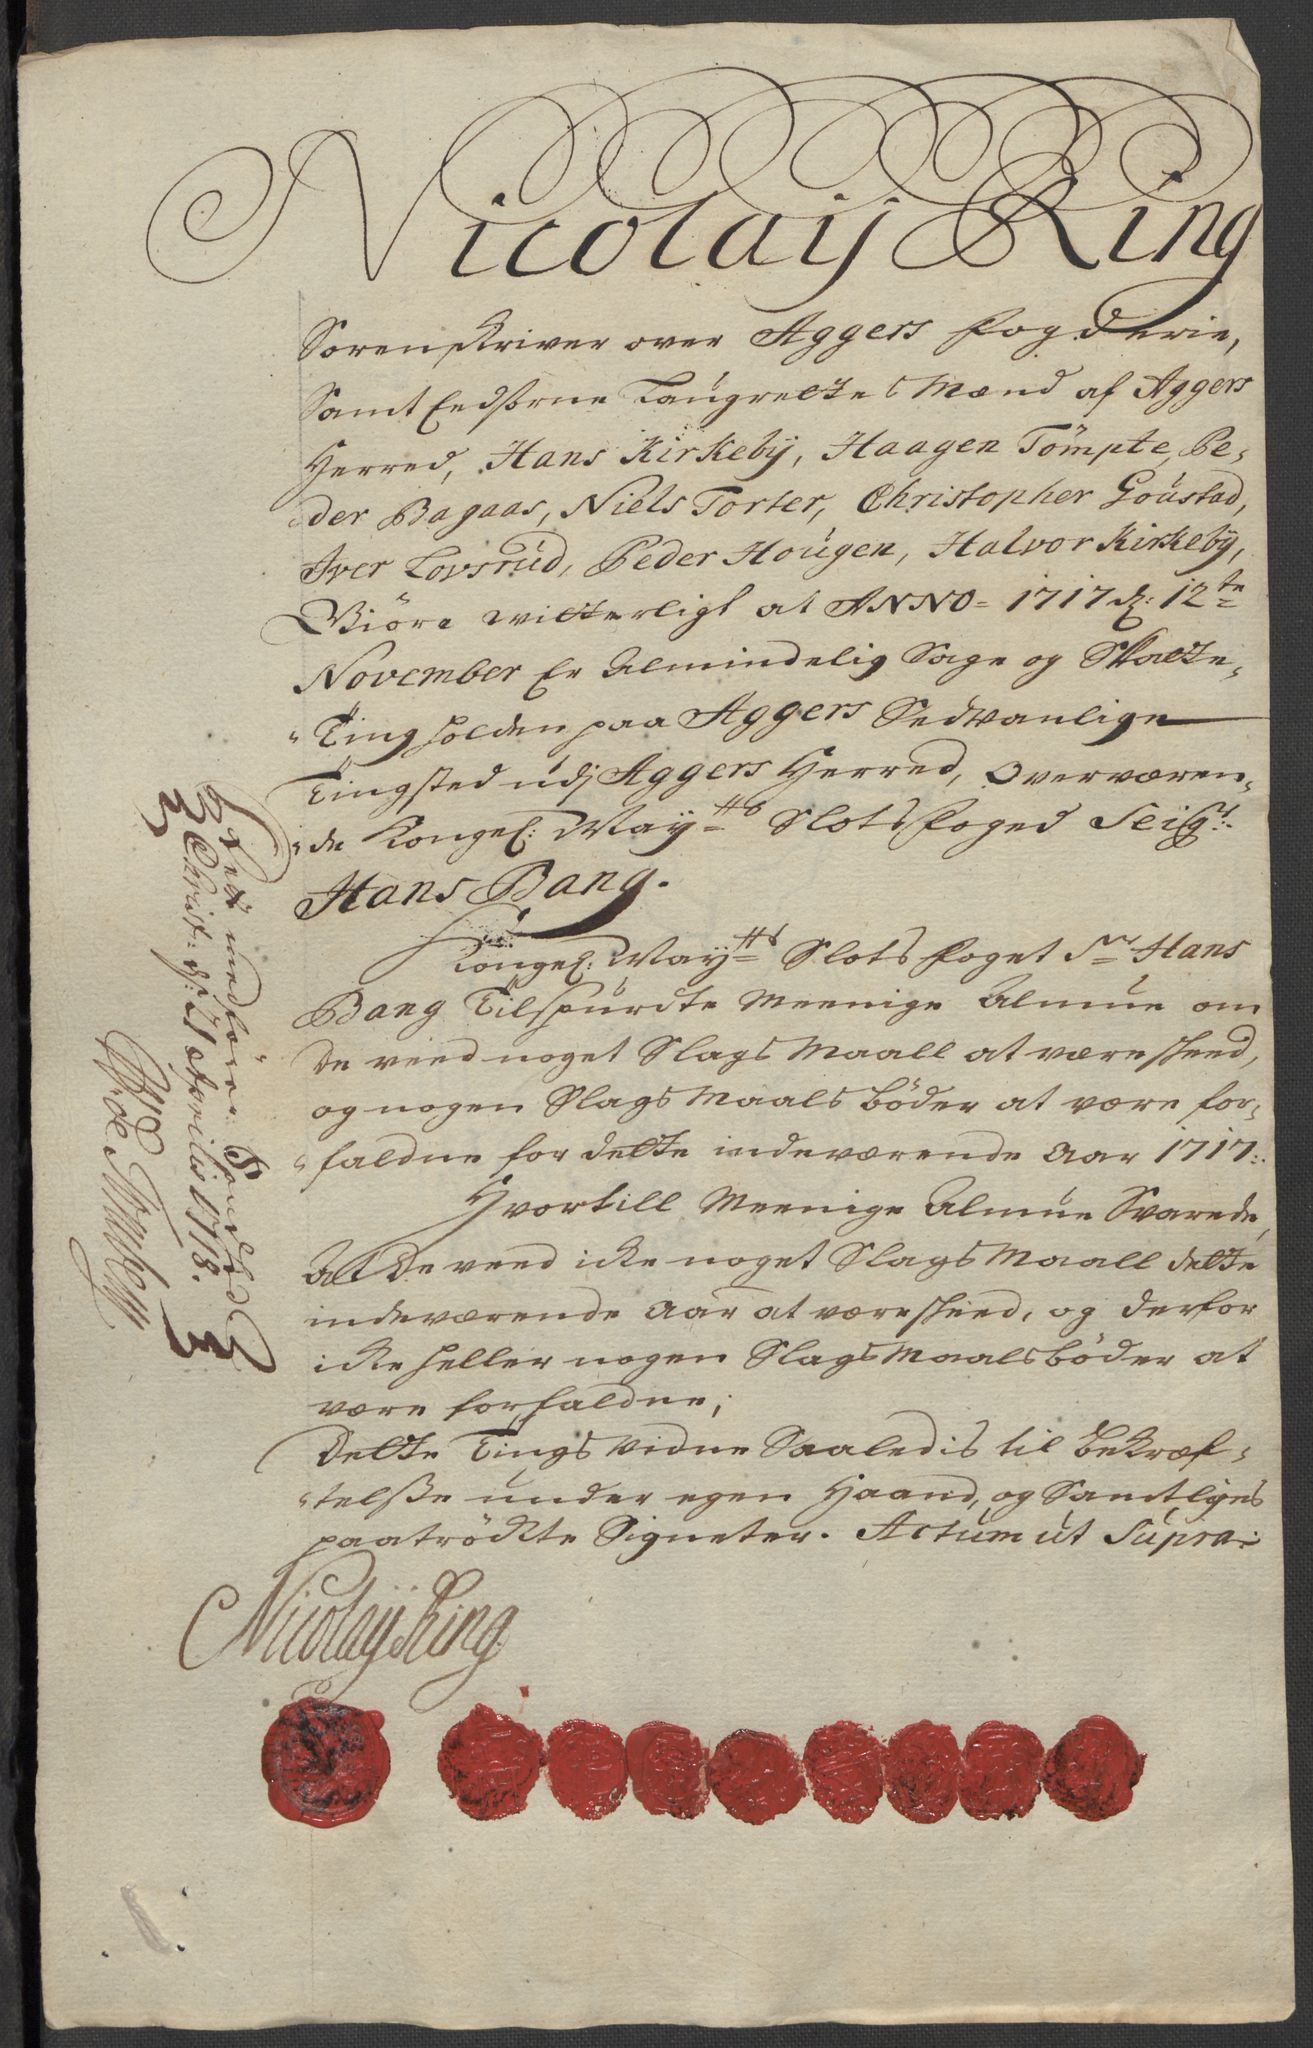 Nicolaÿ Ring
Sorenskriver over Aggers fogderie,
Samt Eedsorne Laugrettes Mænd af Aggers
Herred, Hans Kirkebÿ, Haagen Tömpte, Pe-
der Bagaas, Niels Torter, Christopher Goustad,
Iver Lovsrud, Peder Hougen, Halvor Kirkebÿ,
Giöre witterligt at ANNO = 1717 d: 12te
November Er Almindelig Sage og Skatte-
Ting holden paa Aggers Sedvanlige
Tingsted udj Aggers Herred, Overværen-
de Kongel: Mayts Slotsfoged Seigr:
Hans Bang.
Kongel: Mayts Slotsfoget Sr Hans
Bang Tilspurdte Meenige Almue om
de veed noget SlagsMaall at være skeed,
og nogen SlagsMaals böder at være for-
faldne for dette indeværende Aar 1717:
Hvortill Meenige Almue Svarede,
At de veed icke noget SlagsMaall dette
indeværende Aar at være skeed, og derfor
icke heller nogen SlagsMaalsböder at
være forfaldne;
Dette Tings Vidne Saaledis til bekræf-
telsse under egen Haand, og Samtliges
paatröckte Signeter. Actum ut Supra.
Nicolaÿ Ring
medförer
Christ: d: Aprilis 1718.